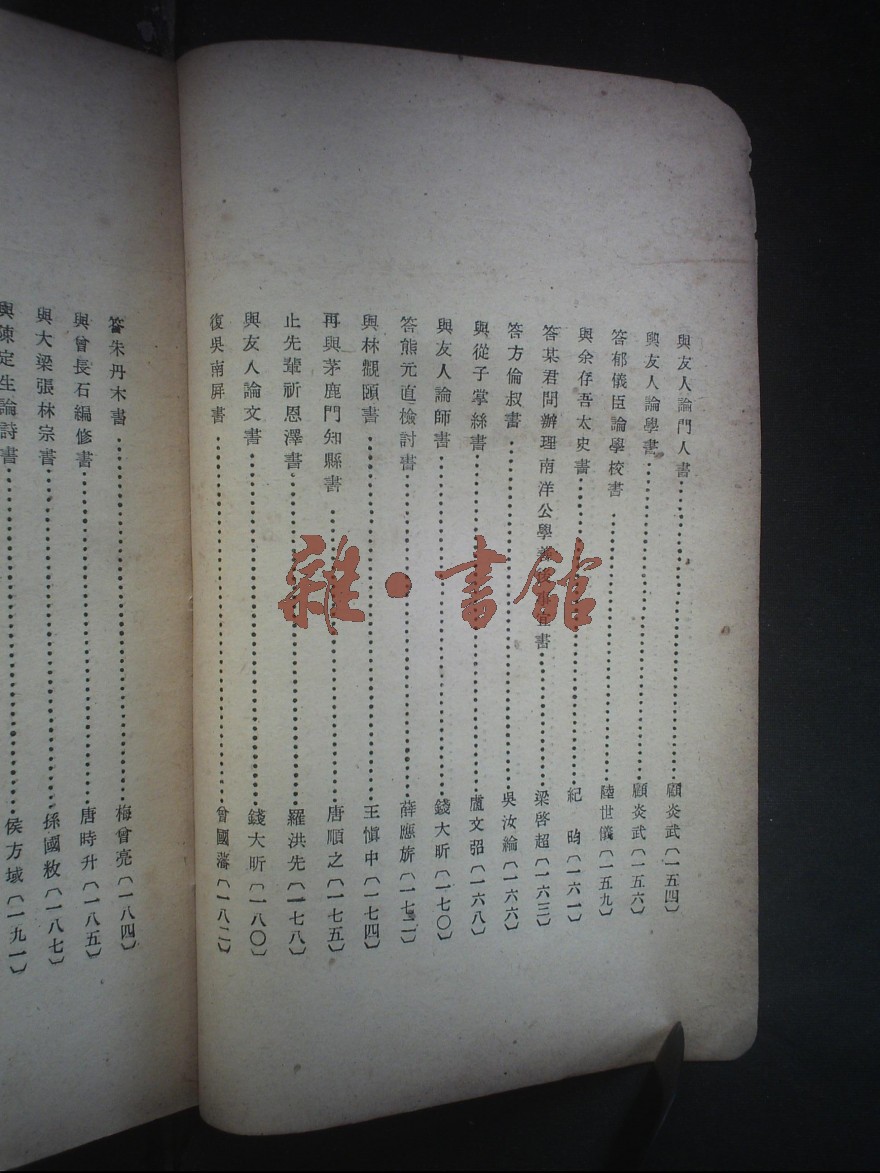 與友人論門人書 顧炎武〔一五四〕
與友人論學書 顧炎武〔一五六〕
答郁儀臣論學校書 陸世儀〔一五九〕
與余存吾太史書 紀昀〔一六一〕
答某君問辦理南洋公學 宜書 梁啓超〔一六三〕
答方倫叔書 吳汝綸〔一六六〕
與從子掌絲書 盧文弨〔一六八〕
與友人論師書 錢大昕〔一七〇〕
答熊元直檢討書 薛應旂〔一七二〕
與林觀頤書 王愼中〔一七四〕
再與茅鹿門知縣書 唐順之〔一七五〕
止先輩祈恩澤書 羅洪先〔一七八〕
與友人論文書 錢大昕〔一八〇〕
復吳南屏書 曾國藩〔一八二〕
答朱丹木書 梅曾亮〔一八四〕
與曾長石編修書 唐時升〔一八五〕
與大梁張林宗書 孫國敉〔一八七〕
與陳定生論詩書 侯方域〔一九一〕
雜·書館